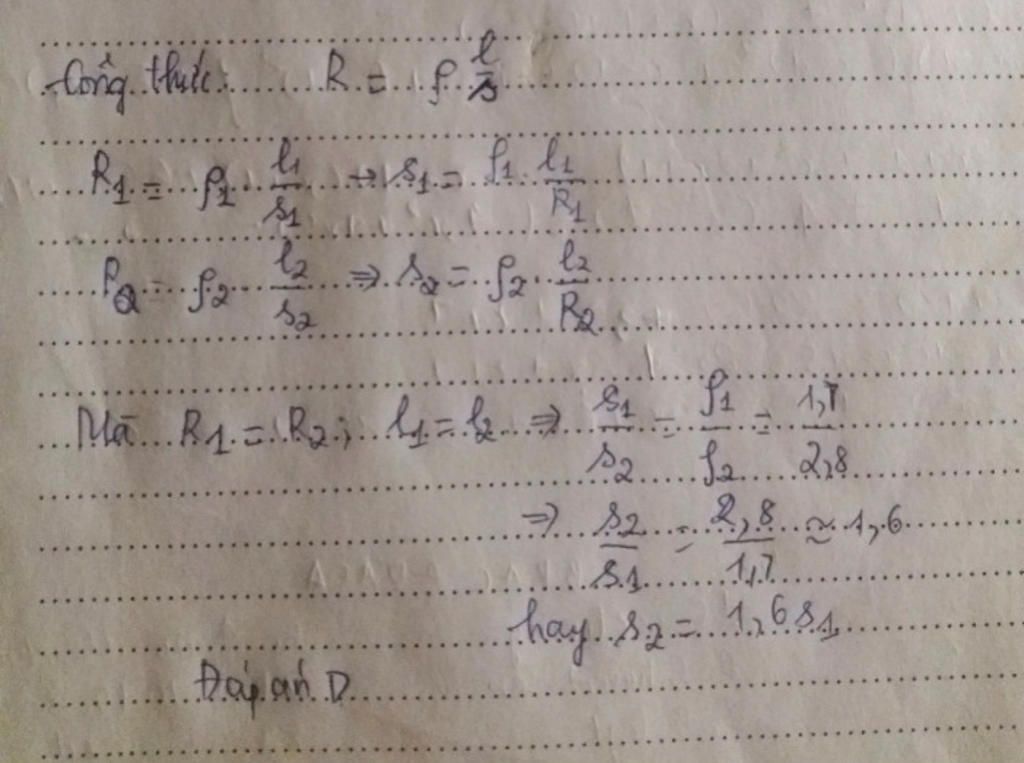 - Công thức: R = ρ l/s
R1 = ρ1 . l1/s1 → s1 = ρ1 . l1/R1
R2 = ρ2 . l2/s2 ⇒ s2 = ρ2 . l2/R2
Mà R1 = R2 ; l1 = l2 ⇒ s1/s2 = ρ1/ρ2 = 1,7/2,8
⇒ s2/s1 = 2,8/1,7 ≃ 1,6
hay s2 = 1,6 s1
Đáp án D